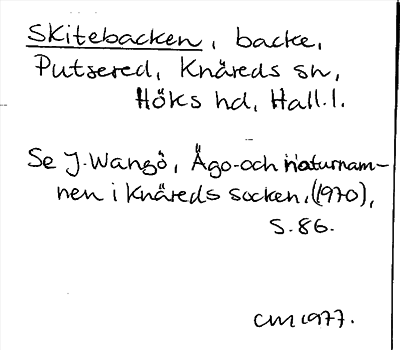 Skitebacken, backe,
Putsered, Knäreds sn,
Höks hd, Hall. l.
Se J. Wangö, Ägo- och naturnam-
nen i Knäreds socken, (1970),
s. 86.
CM 1977.